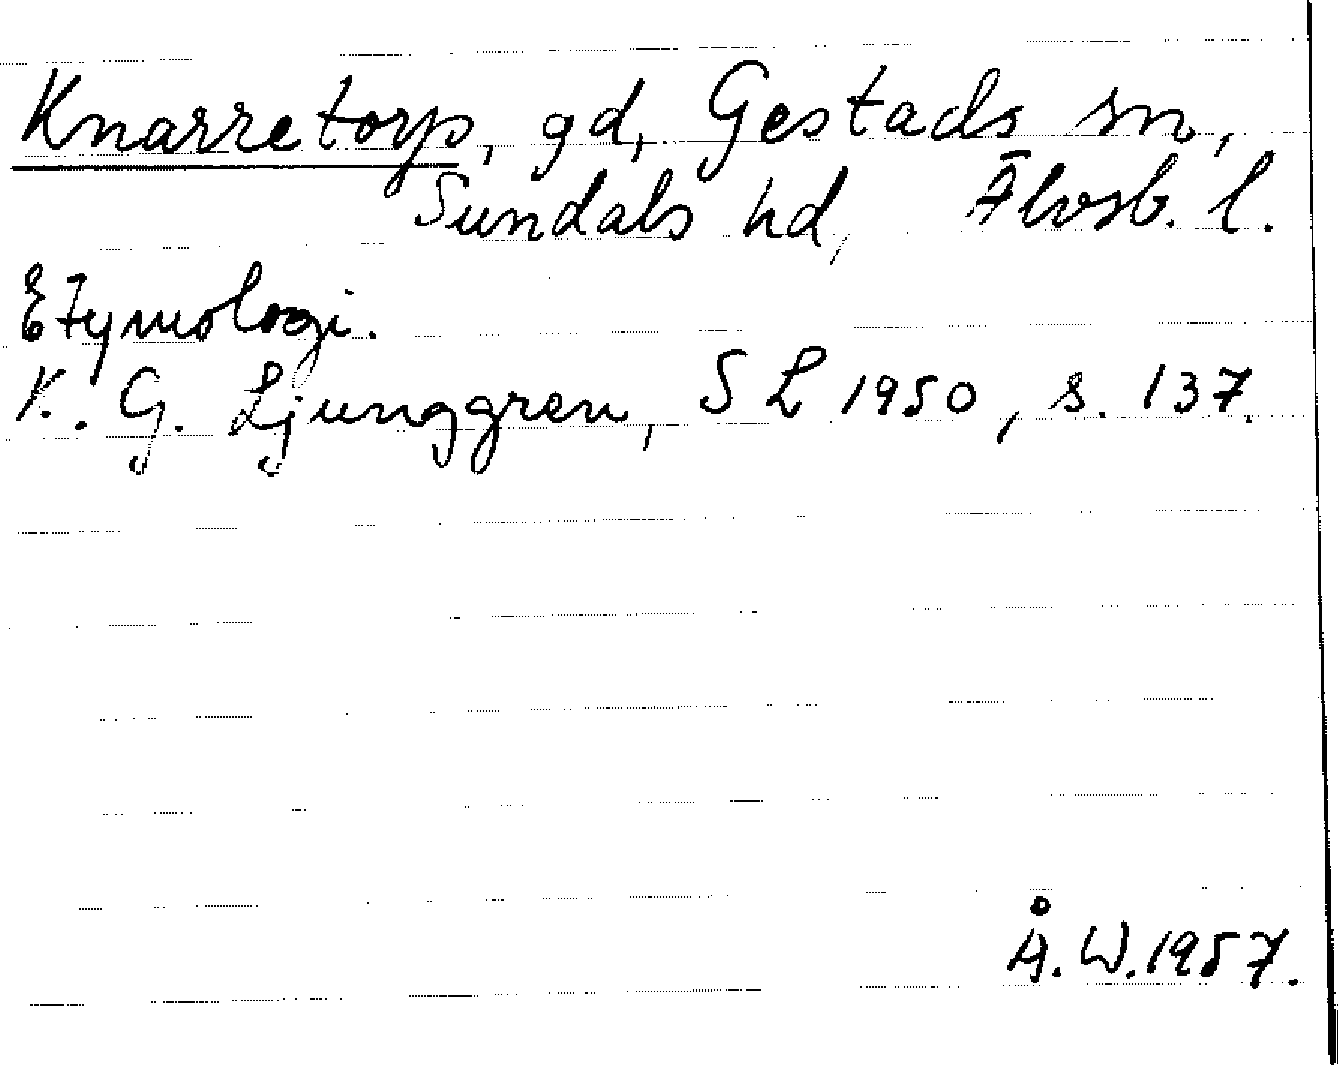 Knarretorp, gd, Gestads sn,
Sundals hd, Älvsb. l.
Etymologi.
K. G. Ljunggren, SL 1950, s. 137.
Å. W. 1957.